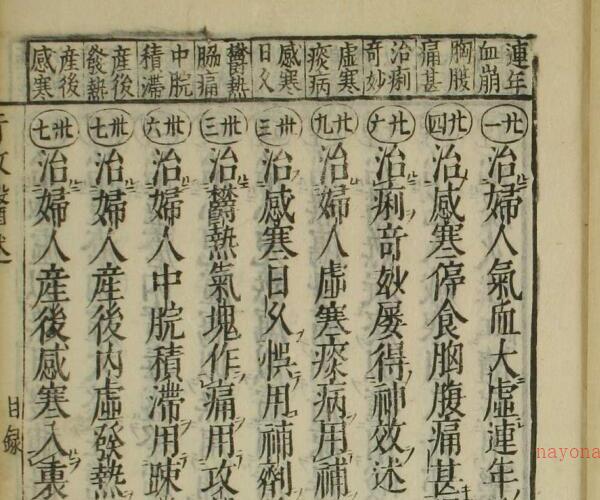 連年血崩
廿一
治婦人氣血大虛連年
胸腹痛甚
廿四
治感寒停食胸腹痛甚
治痢奇妙
治痢奇玅屢得神效述
虛寒痰病
廿九
治婦人虛寒痰病用補
感寒日久
卅三
治感寒日久悞用補劑
鬱熱脇痛
卅三
治鬱熱氣塊作痛用攻
中脘積滯
卅六
治婦人中脘積滯用疎
產後發熱
卅七
治婦人產後內虛發熱
產後感寒
卅七
治婦人產後感寒入裏
目録
nayona